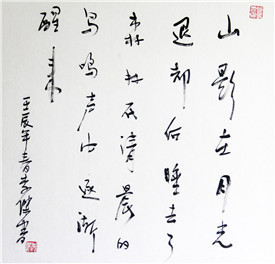 山影在月光
退却后睡去了
森林在清晨的
鸟鸣声中逐渐
醒来
壬辰年书